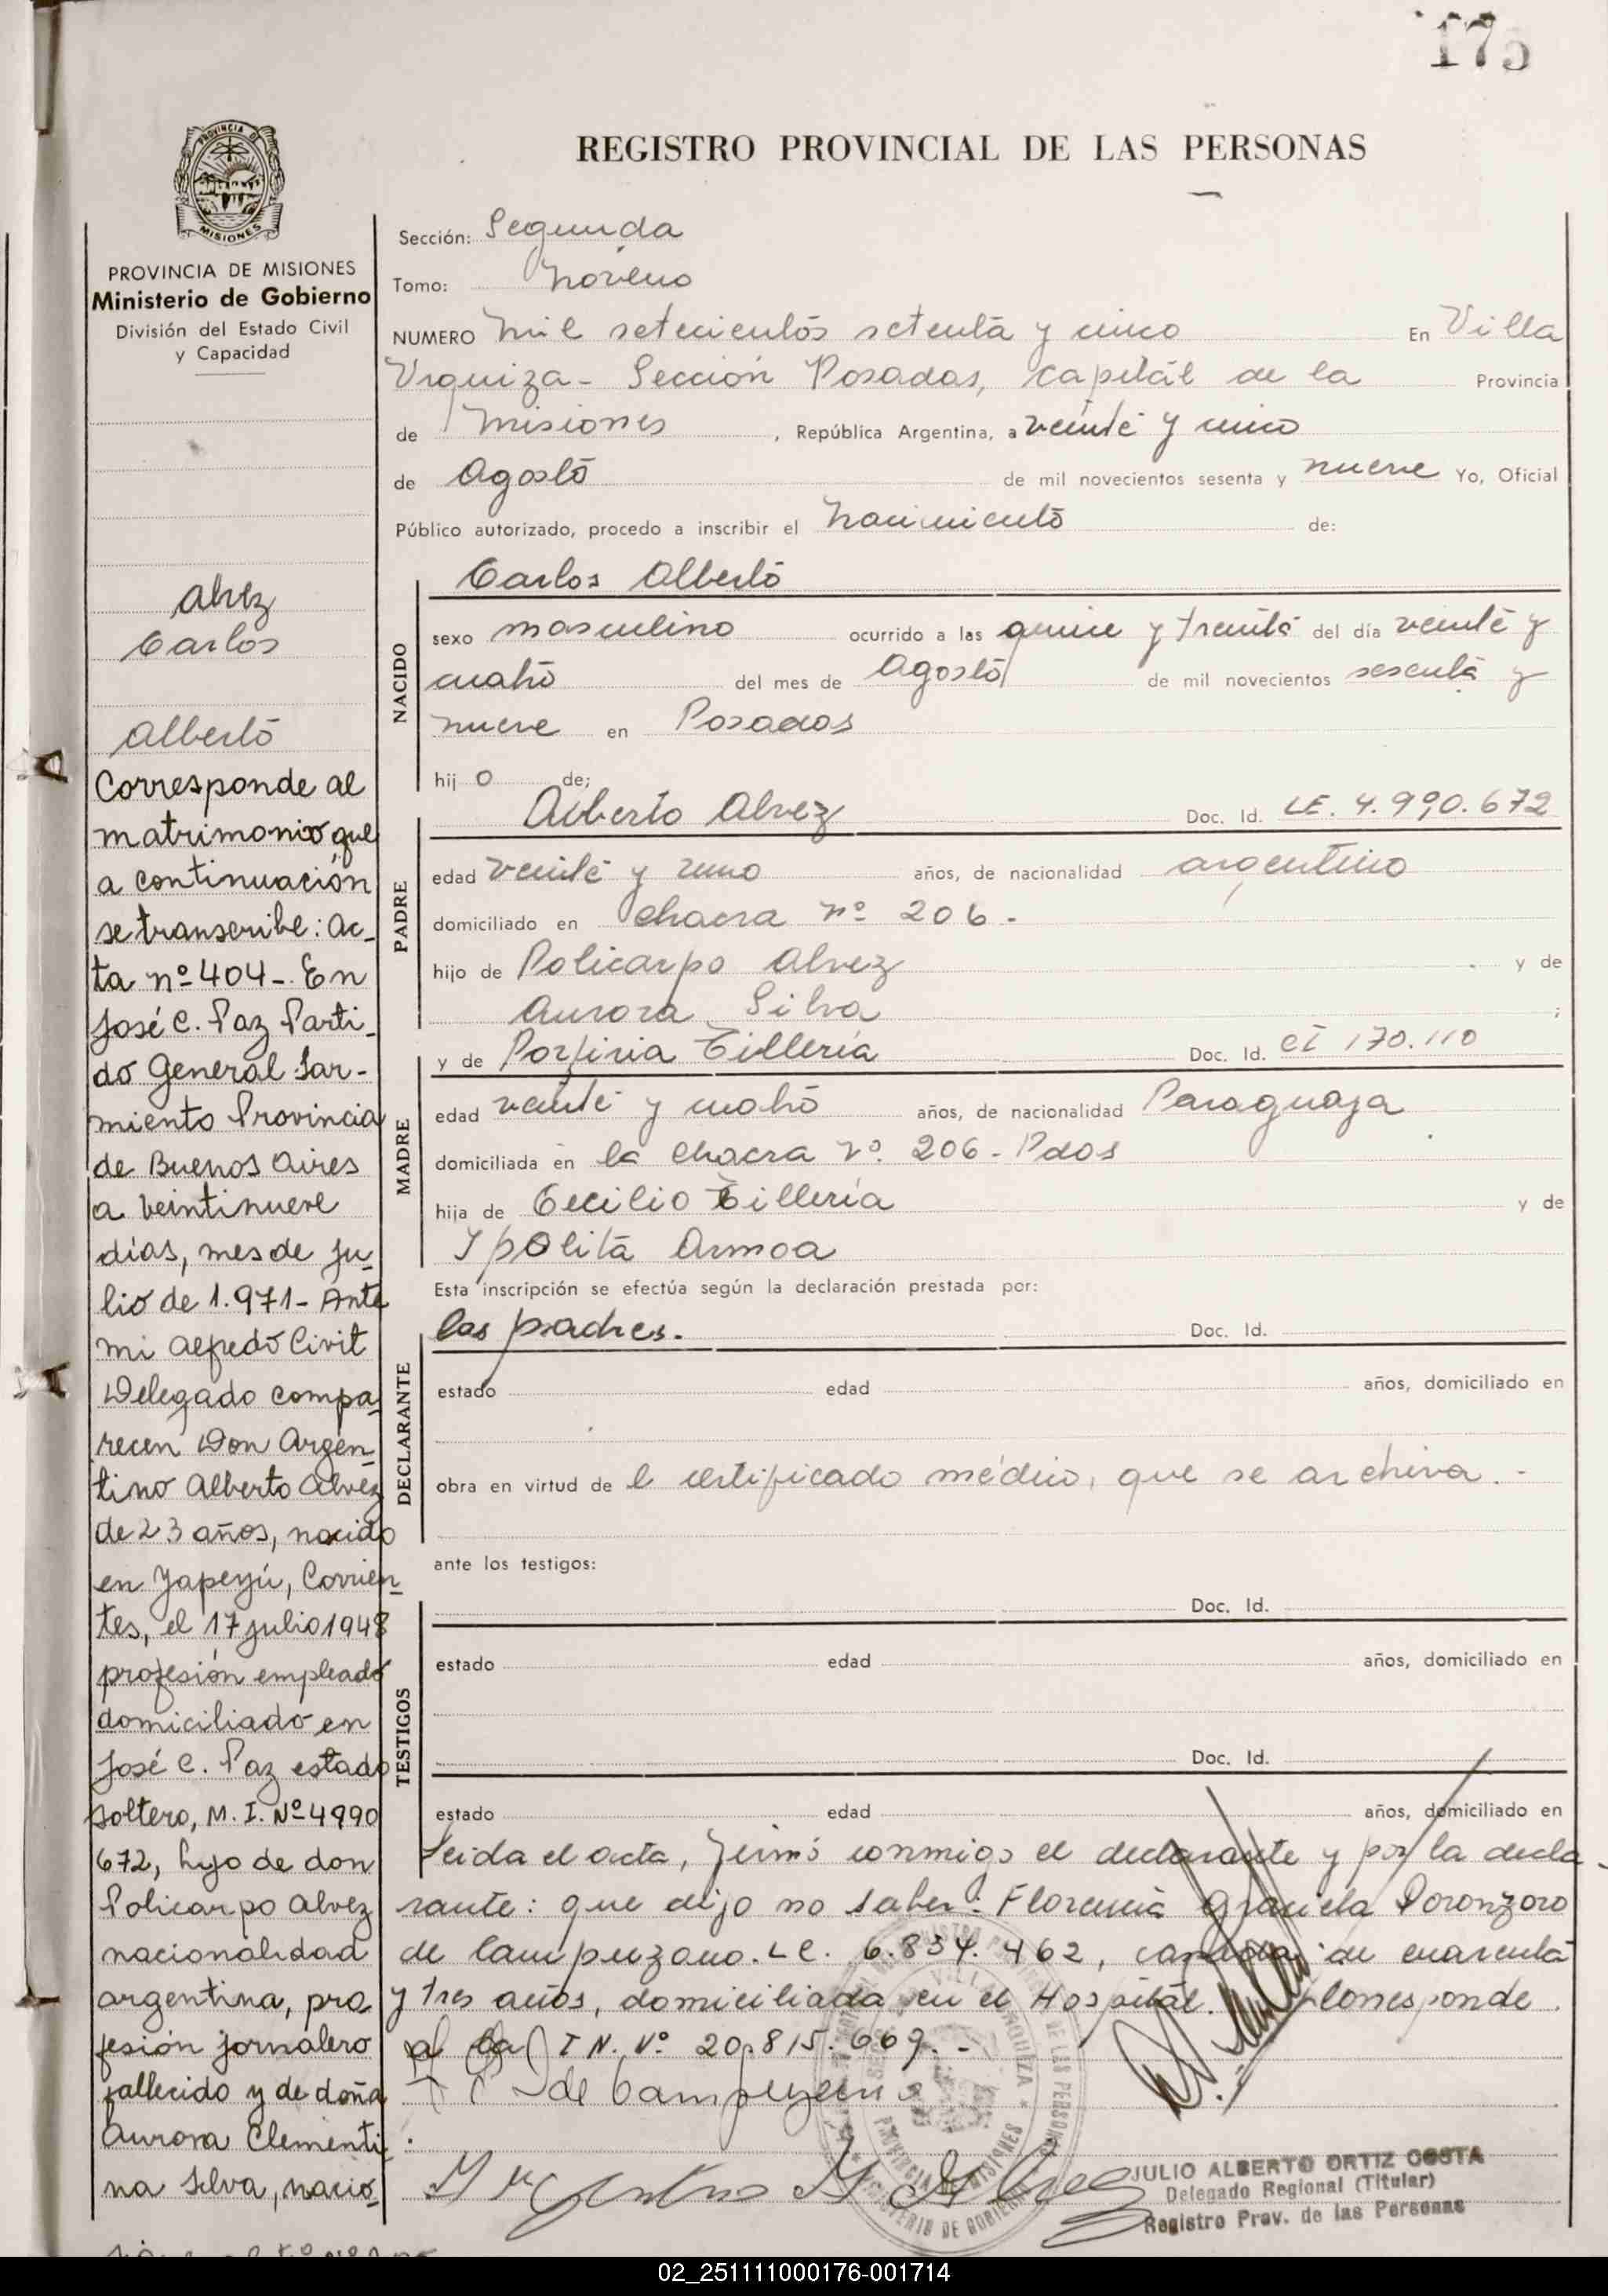 175
REGISTRO PROVINCIAL DE LAS PERSONAS
PROVINCIA DE
MISIONES
PROVINCIA DE MISIONES
Ministerio de Gobierno
División del Estado Civil
y Capacidad
Alvez
Carlos
Alberto
Corresponde al
matrimonio que
a continuación
se transcribe: Ac-
ta nº 404-. En
José C. Paz Parti-
do General Sar-
miento Provincia
de Buenos Aires
a veintinueve
días, mes de ju-
lio de 1.971- Ante
mi Alfredo Civit
Delegado compa-
recen Don Argen-
tino Alberto Alvez
de 23 años, nacido
en Yapeyú, Corrien-
tes, el 17 julio 1948
profesión empleado
domiciliado en
José C. Paz estado
soltero, M. I. Nº 4990
672, hijo de don
Policarpo Alvez
nacionalidad
argentina, pro
fesión jornalero
fallecido y de doña
Aurora Clementi-
na Silva, nacio-
Sección: Segunda
Tomo: Noveno
NUMERO Mil setecientos setenta y cinco En Villa
Urquiza - Sección Posadas, capital de la Provincia
de Misiones, República Argentina, a veinte y cinco
de Agosto de mil novecientos sesenta y nueve Yo, Oficial
Público autorizado, procedo a inscribir el Nacimiento de:
NACIDO
Carlos Alberto
sexo masculino ocurrido a las quince y treinta del día veinte y
cuatro del mes de Agosto de mil novecientos sesenta y
nueve en Posadas
hij o de;
PADRE
Alberto Alvez Doc. Id. LE. 4.990.672
edad veinte y uno años, de nacionalidad argentino
domiciliado en chacra nº 206.
hijo de Policarpo Alvez y de
Aurora Silva ;
MADRE
y de Porfiria Tilleria Doc. Id. CI 170.110
edad veinte y cuatro años, de nacionalidad Paraguaya
domiciliada en la chacra nº. 206 - Pdas
hija de Cecilio Tilleria y de
Ypolita Armoa
Esta inscripción se efectúa según la declaración prestada por:
DECLARANTE
los padres. Doc. Id.
estado edad años, domiciliado en
obra en virtud de l certificado médico, que se archiva. -
ante los testigos:
TESTIGOS
Doc. Id.
estado edad años, domiciliado en
Doc. Id.
estado edad años, domiciliado en
Leida el acta, firmó conmigo el declarante y por la decla-
rante: que dijo no saber: Florencia Graciela Poronzoro
de Campuzano. LC. 6.834.462, casada de cuarenta
y tres años, domiciliada en el Hospital. Corresponde
al la T N. Nº 20.815.669. -
de Campuzano
VILLA URQUIZA
PROVINCIA DE MISIONES
MINISTERIO DE GOBIERNO
JULIO ALBERTO ORTIZ COSTA
Delegado Regional (Titular)
Registro Prov. de las Personas
02_251111000176-001714